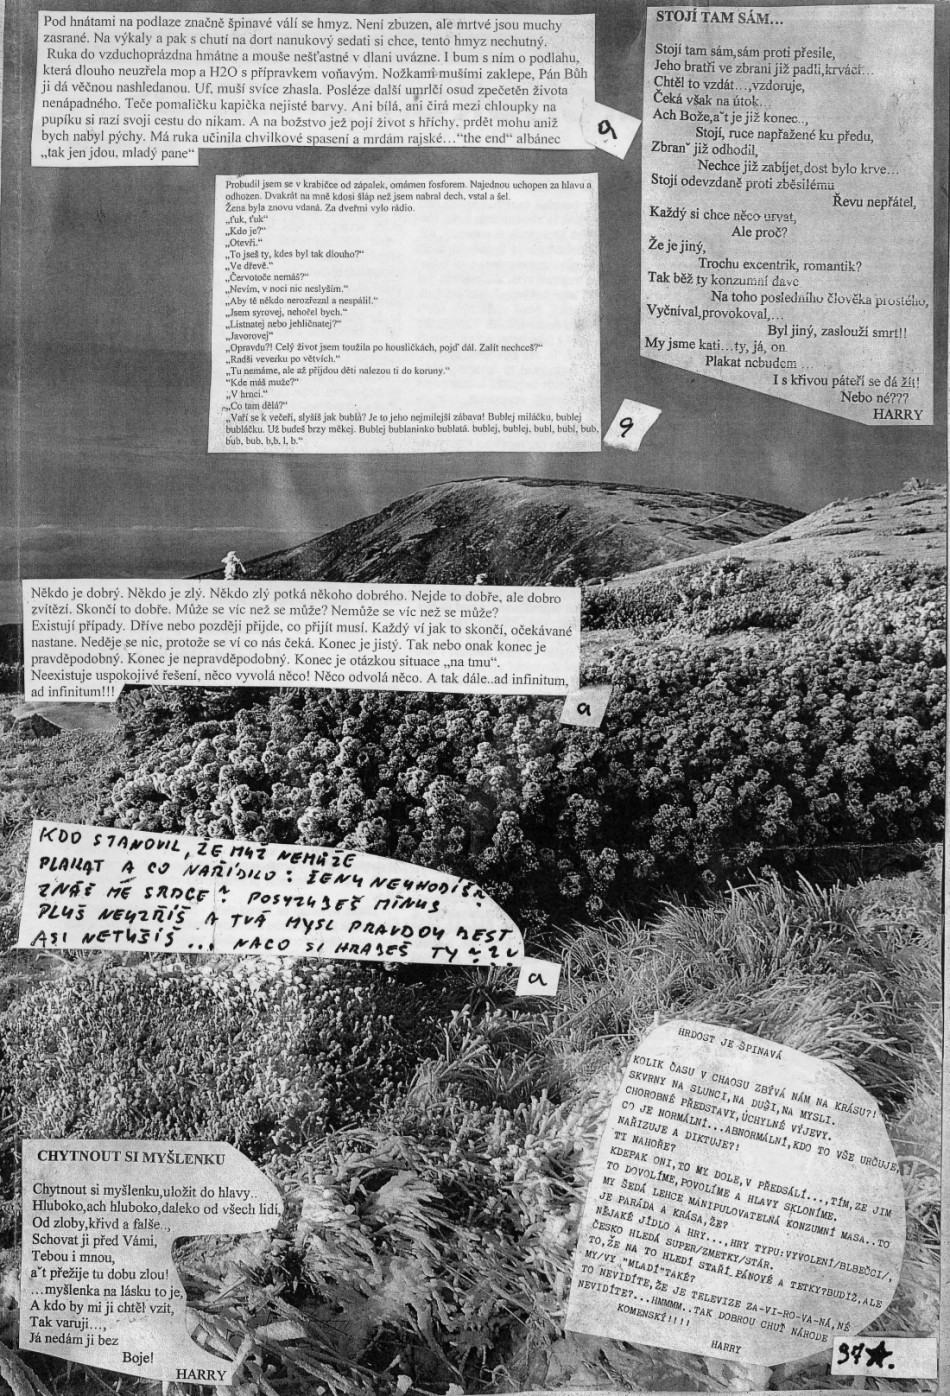 Pod hnátami na podlaze značně špinavé válí se hmyz. Není zbuzen, ale mrtvé jsou muchy
zasrané. Na výkaly a pak s chutí na dort nanukový sedati si chce, tento hmyz nechutný.
Ruka do vzduchoprázdna hmátne a mouše nešťastné v dlani uvázne. I bum s ním o podlahu,
která dlouho neuzřela mop a H2O s přípravkem voňavým. Nožkami mušími zaklepe, Pán Bůh
ji dá věčnou nashledanou. Uf, muší svíce zhasla. Posléze další umrlčí osud zpečetěn života
nenápadného. Teče pomaličku kapička nejisté barvy. Ani bílá, ani čirá mezi chloupky na
pupíku si razí svoji cestu do nikam. A na božstvo jež pojí život s hříchy, prdět mohu aniž
bych nabyl pýchy. Má ruka učinila chvilkové spasení a mrdám rajské…“the end“ albánec
„tak jen jdou, mladý pane“
a
STOJÍ TAM SÁM…
Stojí tam sám,sám proti přesile,
Jeho bratři ve zbrani již padli,krvácí…
Chtěl to vzdát…,vzdoruje,
Čeká však na útok…
Ach Bože,aˇt je již konec..,
Stojí, ruce napřažené ku předu,
Zbranˇ již odhodil,
Nechce již zabíjet,dost bylo krve…
Stojí odevzdaně proti zběsilému
Řevu nepřátel,
Každý si chce něco urvat,
Ale proč?
Že je jiný,
Trochu excentrik, romantik?
Tak běž ty konzumní dave
Na toho posledního člověka prostého,
Vyčníval,provokoval,…
Byl jiný, zaslouží smrt!!
My jsme kati…ty, já, on
Plakat nebudem …
I s křivou páteří se dá žít!
Nebo né???
HARRY
Probudil jsem se v krabičce od zápalek, omámen fosforem. Najednou uchopen za hlavu a
odhozen. Dvakrát na mně kdosi šláp než jsem nabral dech, vstal a šel.
Žena byla znovu vdaná. Za dveřmi vylo rádio.
„ťuk, ťuk“
„Kdo je?“
„Otevři.“
„To jseš ty, kdes byl tak dlouho?“
„Ve dřevě.“
„Červotoče nemáš?“
„Nevím, v noci nic neslyším.“
„Aby tě někdo nerozřeznl a nespálil.“
„Jsem syrovej, nehořel bych.“
„Listnatej nebo jehličnatej?“
„Javorovej“
„Opravdu?! Celý život jsem toužila po housličkách, pojď dál. Zalít nechceš?“
„Radši veverku po větvích.“
„Tu nemáme, ale až přijdou děti nalezou ti do koruny.“
“Kde máš muže?“
„V hrnci.“
„Co tam dělá?“
„Vaří se k večeři, slyšíš jak bublá? Je to jeho nejmilejší zábava! Bublej miláčku, bublej
bubláčku. Už budeš brzy měkej. Bublej bublaninko bublatá. bublej, bublej, bubl, bubl, bub,
bub, bub, b,b, l, b.“
a
Někdo je dobrý. Někdo je zlý. Někdo zlý potká někoho dobrého. Nejde to dobře, ale dobro
zvítězí. Skončí to dobře. Může se víc než se může? Nemůže se víc než se může?
Existují případy. Dříve nebo později přijde, co přijít musí. Každý ví jak to skončí, očekávané
nastane. Neděje se nic, protože se ví co nás čeká. Konec je jistý. Tak nebo onak konec je
pravděpodobný. Konec je nepravděpodobný. Konec je otázkou situace „na tmu“.
Neexistuje uspokojivé řešení, něco vyvolá něco! Něco odvolá něco. A tak dále..ad infinitum,
ad infinitum!!!
a
KDO STANOVIL, ŽE MUŽ NEMŮŽE
PLAKAT A CO NAŘÍDILO: ŽENU NEUHODÍŠ
ZNÁŠ MÉ SRDCE MÍNUS
PLUS NEUZŘÍŠ A TVÁ MYSL PRAVDOU
ASI NETUŠÍŠ ... NACO SI HRAJEŠ TY
a
HRDOST JE ŠPINAVÁ
KOLIK ČASU V CHAOSU ZBÝVÁ NÁM NA KRÁSU?!
SKVRNY NA SLUNCI,NA DUŠI,NA MYSLI.
CHOROBNÉ PŘEDSTAVY,ÚCHYLNÉ VÝJEVY.
CO JE NORMÁLNÍ...ABNORMÁLNÍ,KDO TO VŠE URČUJE,
NAŘIZUJE A DIKTUJE?!
TI NAHOŘE?
KDEPAK ONI,TO MY DOLE,V PŘEDSÁLÍ...,TÍM,ZE JIM
TO DOVOLÍME,POVOLÍME A HLAVY SKLONÍME.
MY ŠEDÁ LEHCE MANIPULOVATELNÁ KONZUMNÍ MASA..TO
JE PARÁDA A KRÁSA,ŽE?
NĚJAKÉ JÍDLO A HRY...,HRY TYPU:VYVOLENÍ/BLBEČCI/,
ČESKO HLEDÁ SUPER/ZMETKY/STÁR.
TO,ŽE NA TO HLEDÍ STAŘÍ PÁNOVÉ A TETKY?BUDIŽ,ALE
MY/VY "MLADÍ"TAKÉ?
TO NEVIDÍTE,ŽE JE TELEVIZE ZA-VI-RO-VA-NÁ,NĚ
NEVIDÍTE?...HMMMM..TAK DOBROU CHUŤ NÁRODE
KOMENSKÝ!!!!
HARRY
CHYTNOUT SI MYŠLENKU
Chytnout si myšlenku,uložit do hlavy..
Hluboko,ach hluboko,daleko od všech lidí,
Od zloby,křivd a falše..,
Schovat ji před Vámi,
Tebou i mnou,
aˇt přežije tu dobu zlou!
…myšlenka na lásku to je,
A kdo by mi ji chtěl vzít,
Tak varuji…,
Já nedám ji bez
Boje!
HARRY
37★.